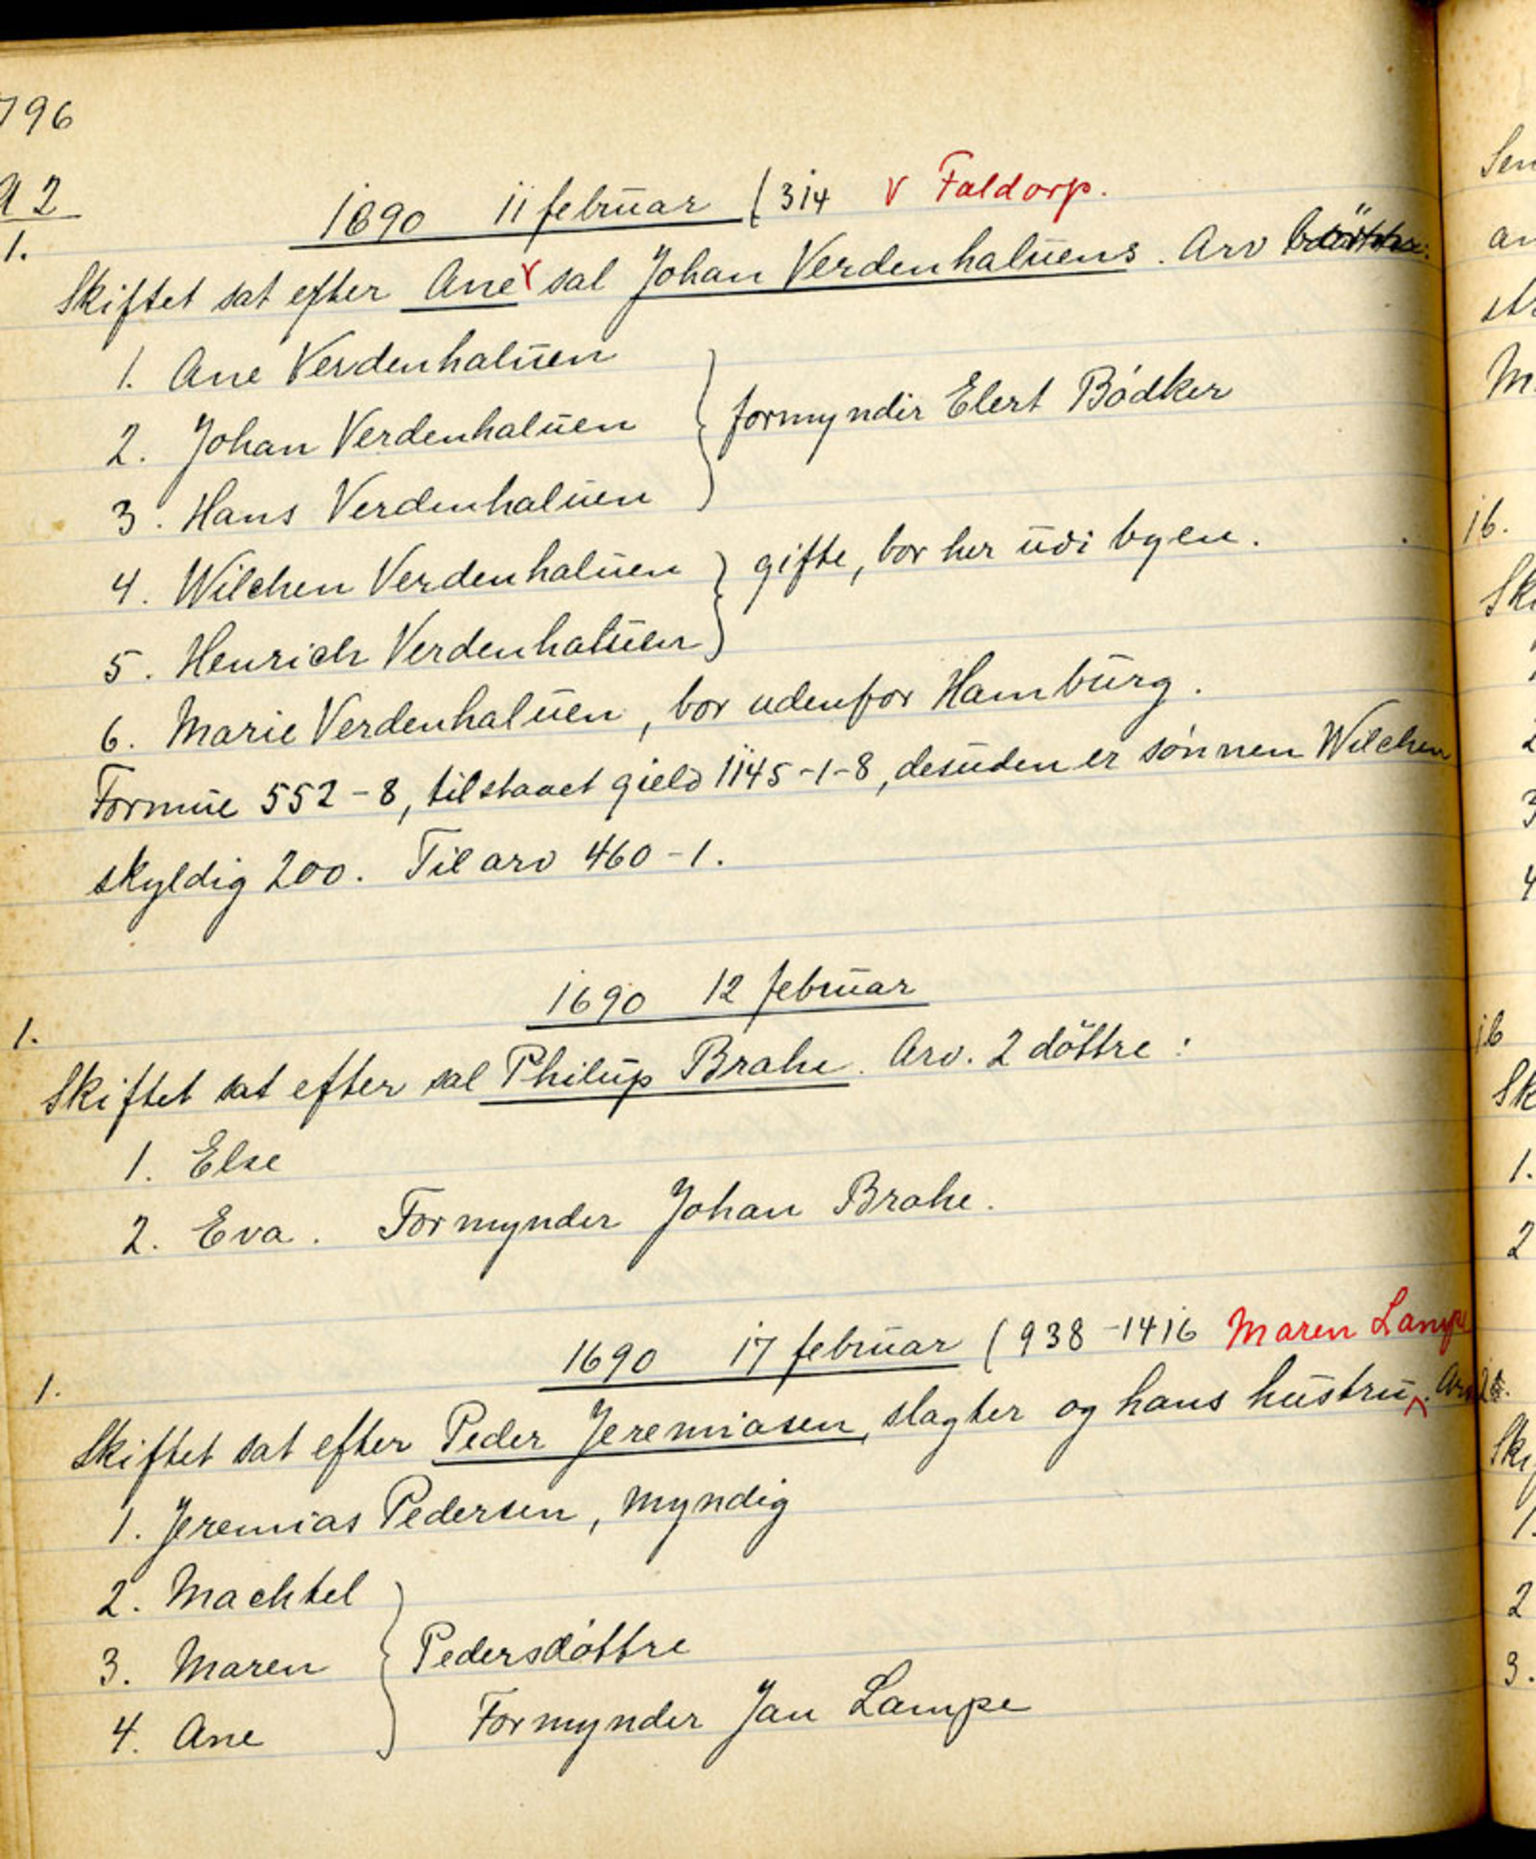 796
A 2
1.
1690 11 februar (314 v Faldorp.
Skiftet sat efter Ane v sal Johan Verdenhaluens. Arv
1. Ane Verdenhaluen
2. Johan Verdenhaluen } formynder Elert Bödker
3. Hans Verdenhaluen
4. Wilchen Verdenhaluen } gifte, bor her udi byen.
5. Henrich Verdenhaluen
6. Marie Verdenhaluen, bor udenfor Hamburg.
Formue 552-8, tilstaaet gield 1145-1-8, desuden er sönnen Wilchen
skyldig 200. Til arv 460-1.
1690 12 februar
1.
Skiftet sat efter sal Philup Brahe. Arv. 2 döttre:
1. Else
2. Eva. Formynder Johan Brahe.
1690 17 februar (938-1416 Maren Lampe
1.
Skiftet sat efter Peder Jeremiasen, slagter og hans hustru. Arv
1. Jeremias Pedersen, myndig
2. Machtel
3. Maren } Pedersdöttre
4. Ane Formynder Jan Lampe